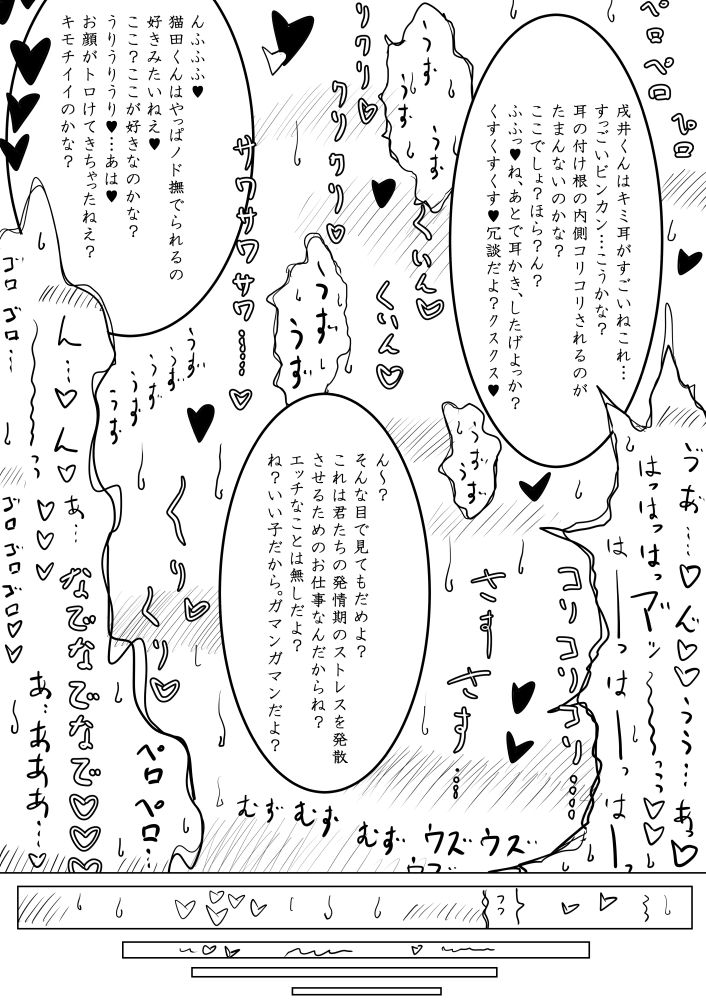 戌井くんはキミ耳がすごいねこれ…
すっごいビンカン…こうかな？
耳の付け根の内側コリコリされるのが
たまんないのかな？
ここでしょ？ほら？ん？
ふふっ♥ね、あとで耳かき、したげよっか？
くすくすくす♥冗談だよ？クスクス♥
んふふふ♥
猫田くんはやっぱノド撫でられるの
好きみたいねえ♥
ここ？ここが好きなのかな？
うりうりうり♥…あは♥
お顔がトロけてきちゃったねえ？
キモチイイのかな？
ん～？
そんな目で見てもだめよ？
これは君たちの発情期のストレスを発散
させるためのお仕事なんだからね？
エッチなことは無しだよ？
ね？いい子だから。ガマンガマンだよ？
ペロペロ
ペロ
うず
うず
うず
リクリ♡
クリクリ♡
くいん♡
くいん♡
サワサワサワサワ…♡
うず
うず
うず
うず
うず
うず
うず
うず
ゴロゴロ…
ゴロゴロゴロ♡♡
ん…♡ん♡
あ…
なでなでなで♡♡♡
あ…あああ…♡
ペロペロ…
くり
くり♡
さす
さす…
コリコリコリコリ…
はっはっはっ
はーっはーっはーっ
うう…あっ♡
むずむず
むず
ウズウズ
ウズ